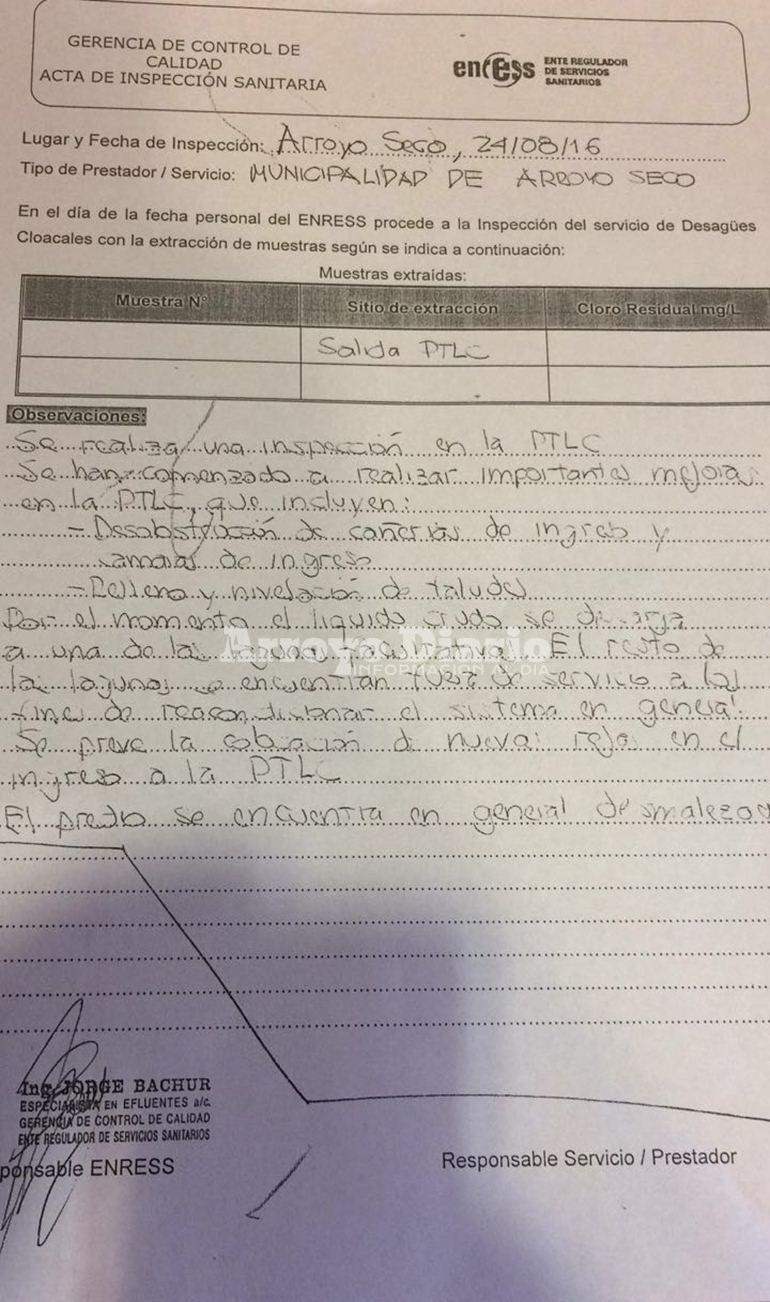 GERENCIA DE CONTROL DE
CALIDAD
ACTA DE INSPECCIÓN SANITARIA
enress ENTE REGULADOR
DE SERVICIOS
SANITARIOS
Lugar y Fecha de Inspección: Arroyo Seco, 24/08/16
Tipo de Prestador / Servicio: MUNICIPALIDAD DE ARROYO SECO
En el día de la fecha personal del ENRESS procede a la Inspección del servicio de Desagües
Cloacales con la extracción de muestras según se indica a continuación:
Muestras extraídas:
Muestra N° Sitio de extracción Cloro Residual mg/L
Salida PTLC
Observaciones:
Se realiza una inspección en la PTLC
Se han comenzado a realizar importantes mejoras
en la PTLC, que incluyen:
- Desobstrucción de cañerías de ingreso y
cámaras de ingreso
- Relleno y nivelación de taludes
Por el momento el líquido crudo se descarga
a una de las lagunas facultativas. El resto de
las lagunas se encuentran fuera de servicio a los
fines de reacondicionar el sistema en general.
Se preve la colocación de nuevas rejas en el
ingreso a la PTLC
El predio se encuentra en general desmalezad
Arroyo Diario
INFORMACIÓN AL DÍA
Ing. JORGE BACHUR
ESPECIALISTA EN EFLUENTES a/c.
GERENCIA DE CONTROL DE CALIDAD
ENTE REGULADOR DE SERVICIOS SANITARIOS
ponsable ENRESS
Responsable Servicio / Prestador